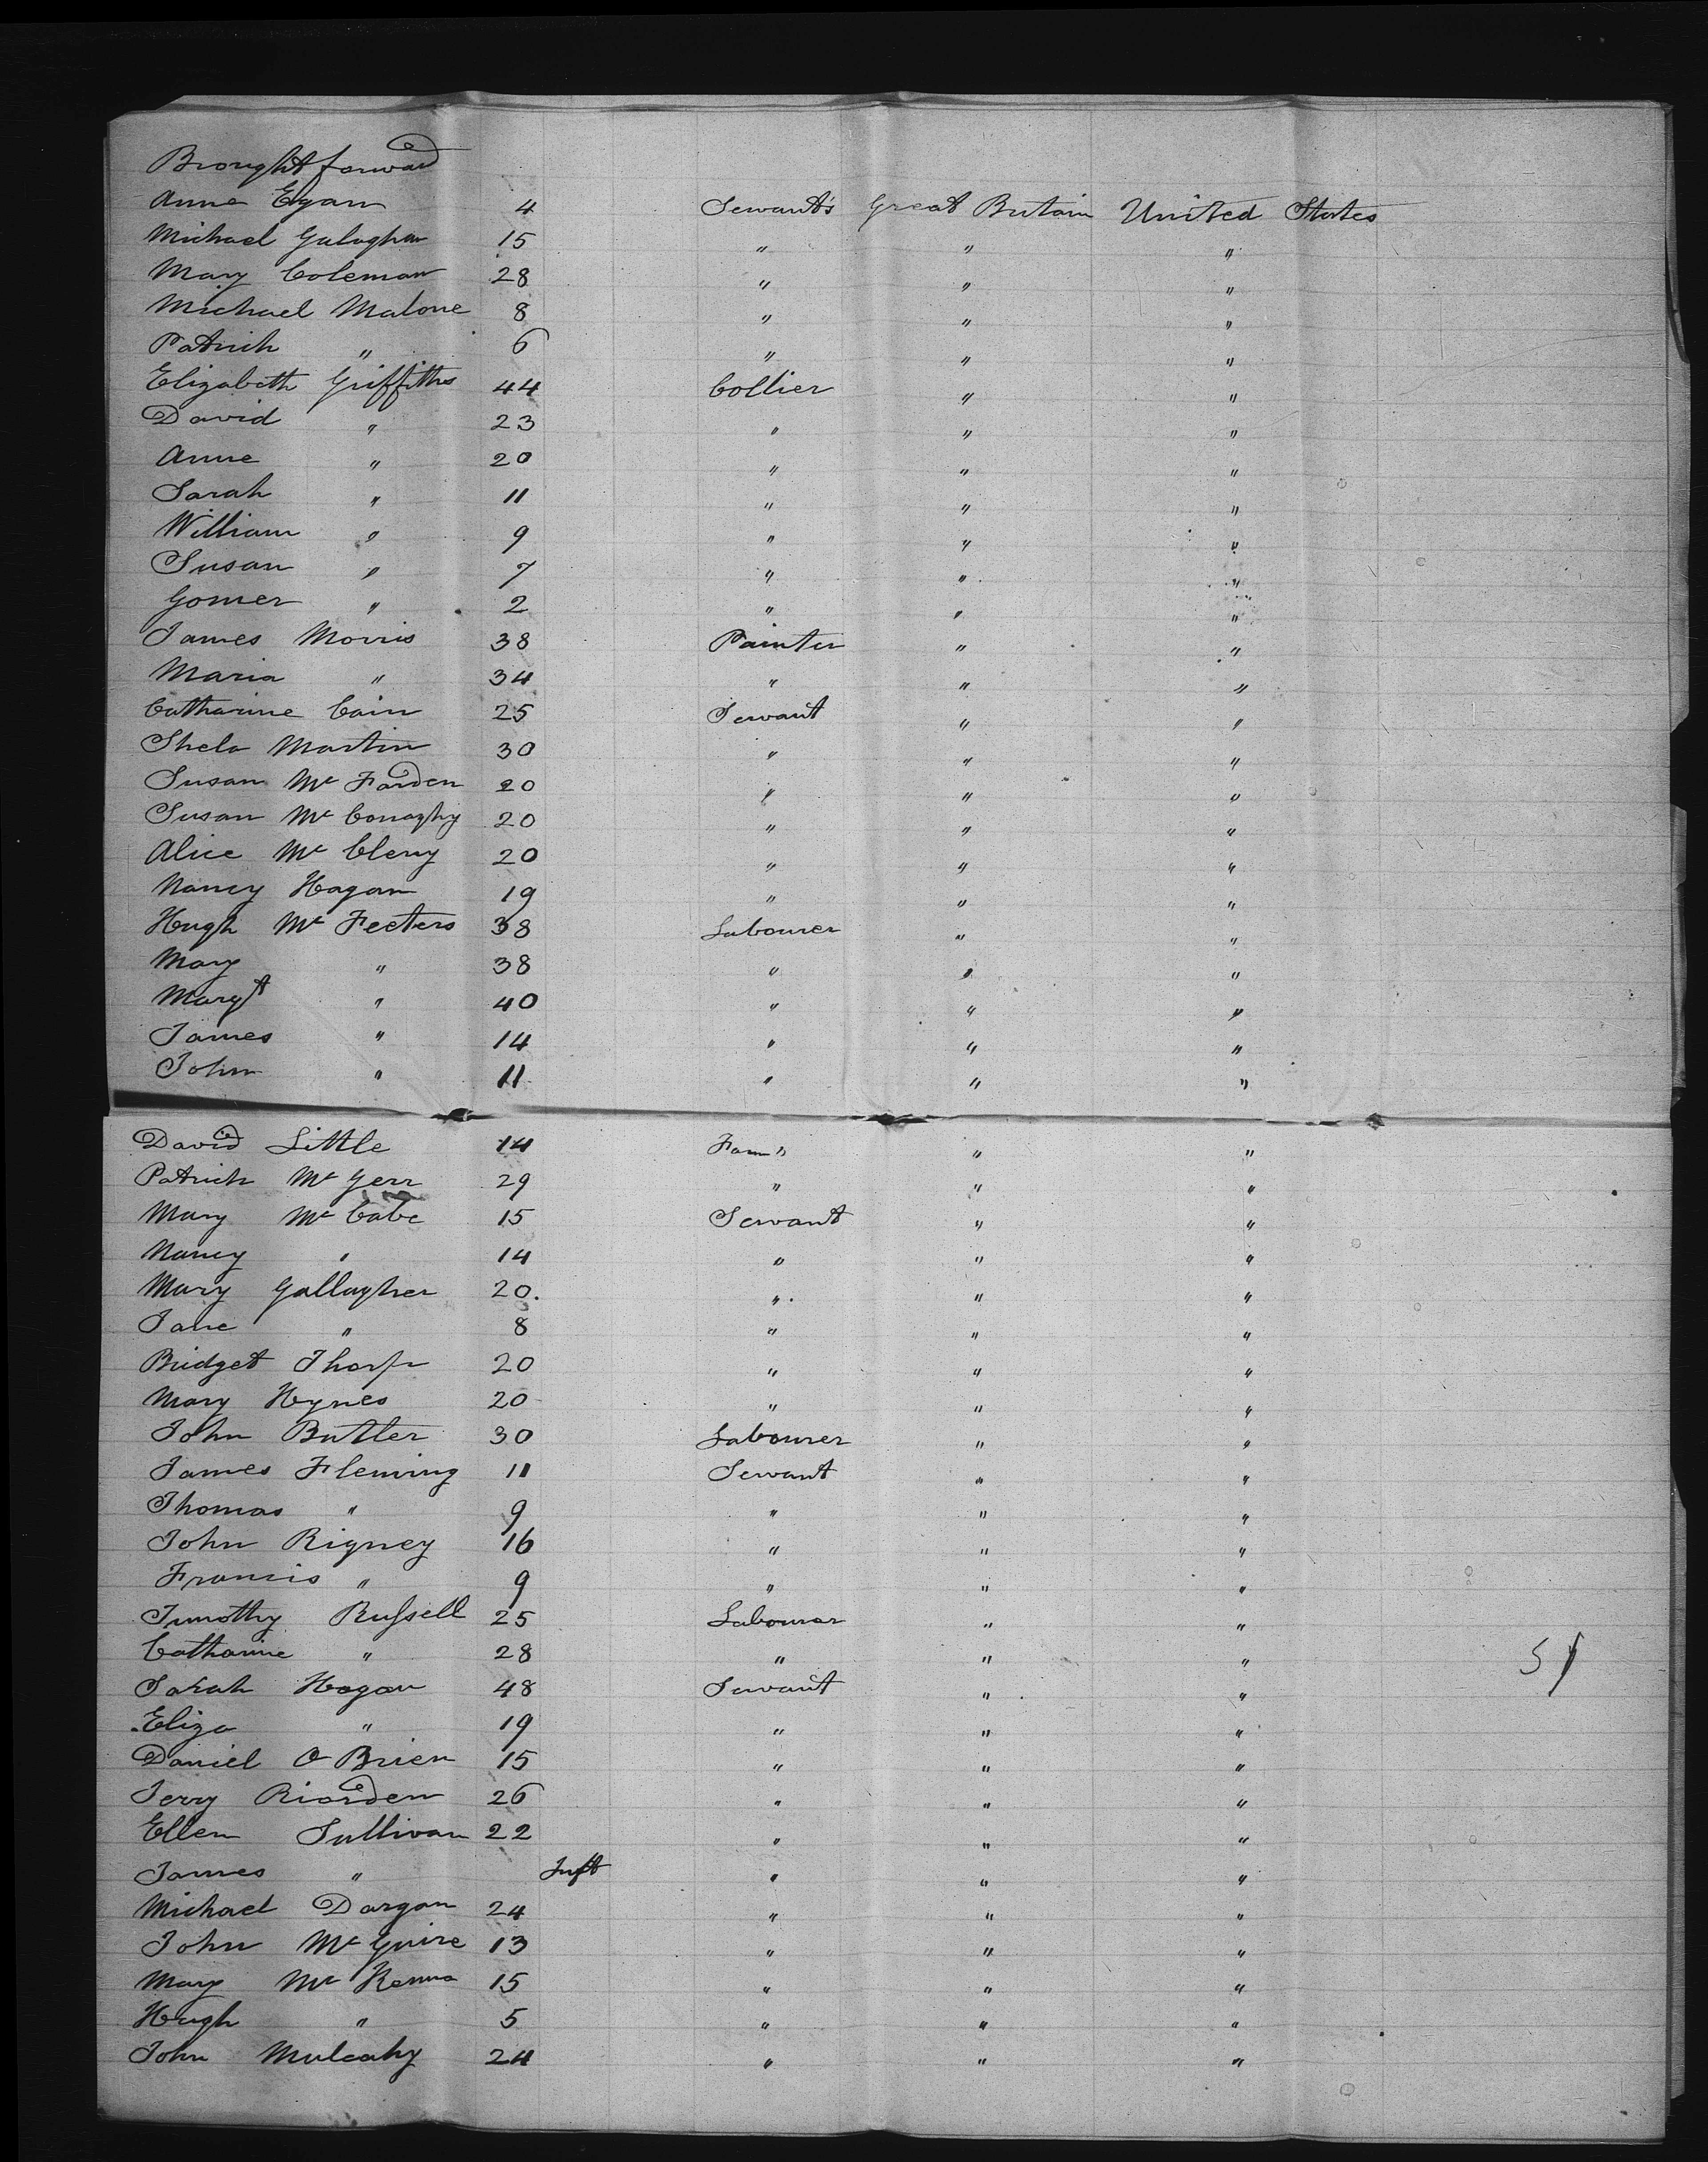 Brought forward
Anne Egan 4 Servants Great Britain United States
Michael Galaghar 15 " " "
Mary Coleman 28 " " "
Michael Malone 8 " " "
Patrick " 6 " " "
Elizabeth Griffiths 44 Collier " "
David " 23 " " "
Anne " 20 " " "
Sarah " 11 " " "
William " 9 " " "
Susan " 7 " " "
Gomer " 2 " " "
James Morris 38 Painter " "
Maria " 34 " " "
Catharine Cain 25 Servant " "
Shela Martin 30 " " "
Susan Mc Fadden 20 " " "
Susan Mc Conaghy 20 " " "
Alice Mc Clery 20 " " "
Nancy Hagan 19 " " "
Hugh Mc Feeters 38 Labourer " "
Mary " 38 " " "
Margt " 40 " " "
James " 14 " " "
John " 11 " " "
David Little 14 Farm " " "
Patrick Mc Gerr 29 " " "
Mary Mc Cabe 15 Servant " "
Nancy " 14 " " "
Mary Gallagher 20. " " "
Jane " 8 " " "
Bridget Thorp 20 " " "
Mary Hynes 20 " " "
John Butler 30 Labourer " "
James Fleming 11 Servant " "
Thomas " 9 " " "
John Rigney 16 " " "
Francis " 9 " " "
Timothy Russell 25 Labourer " "
Catharine " 28 " " "
51
Sarah Hogan 48 Servant " "
Eliza " 19 " " "
Daniel O Brien 15 " " "
Jerry Riorden 26 " " "
Ellen Sullivan 22 " " "
James " Inft " " "
Michael Dargan 24 " " "
John Mc Guire 13 " " "
Mary Mc Kenna 15 " " "
Hugh " 5 " " "
John Mulcahy 24 " " "